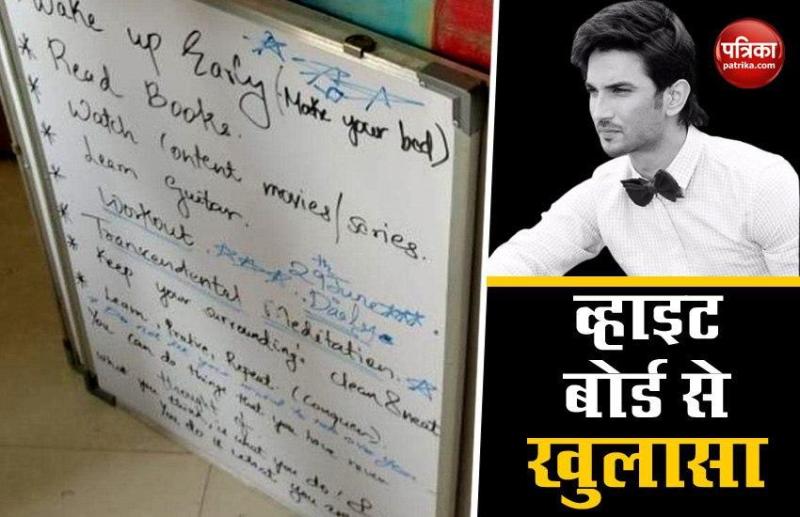 Wake up Early (Make your bed)
* Read Books.
* Watch Content movies/series.
* Learn Guitar.
* Workout. 29th June
* Transcendental Meditation. Daily
* Keep your surroundings clean & neat
* Learn, Repeat (Conquer).
You can do things that you have never
thought of
what you think, is what you do, &
you do is what you
पत्रिका
patrika.com
व्हाइट
बोर्ड से
खुलासा